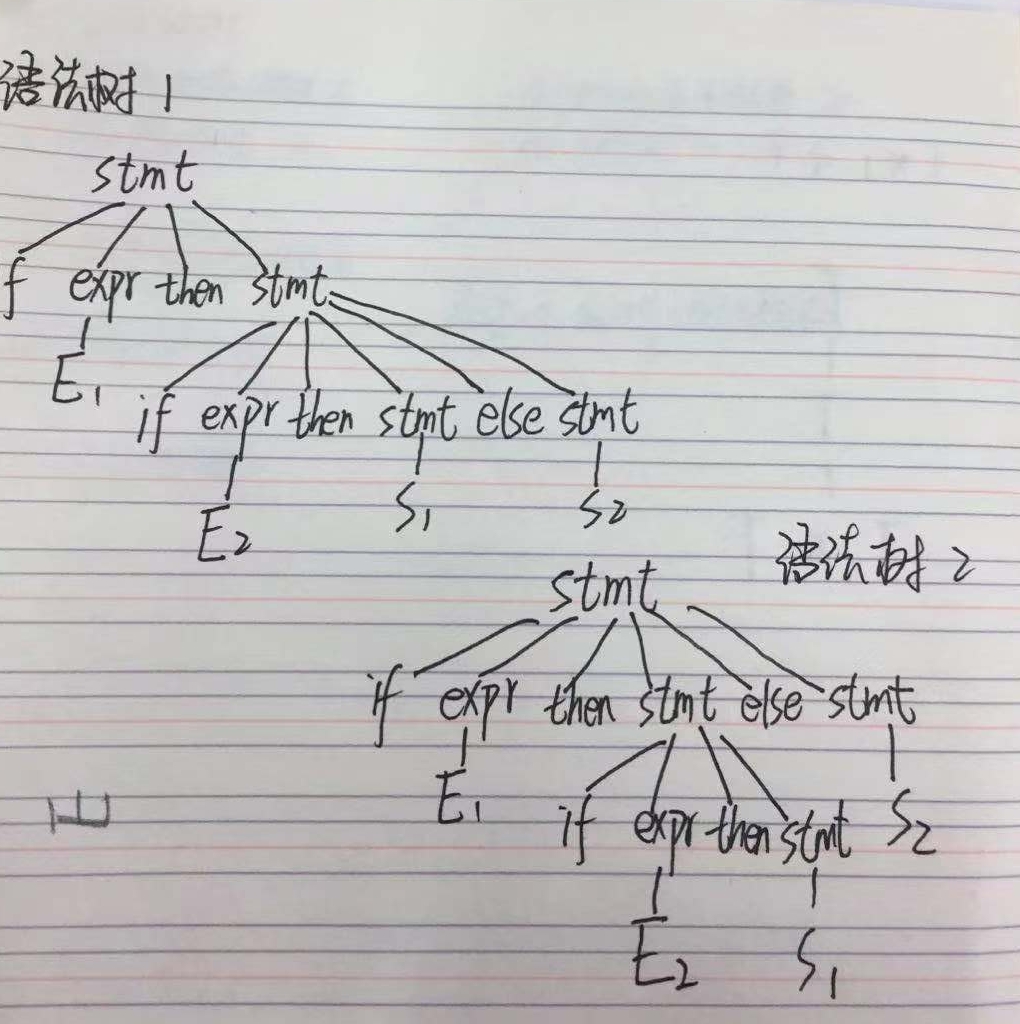 语法树 1
stmt
f expr then stmt
E1
if expr then stmt else stmt
E2 S1 S2
语法树 2
stmt
if expr then stmt else stmt
E1 S2
if expr then stmt
E2 S1
E